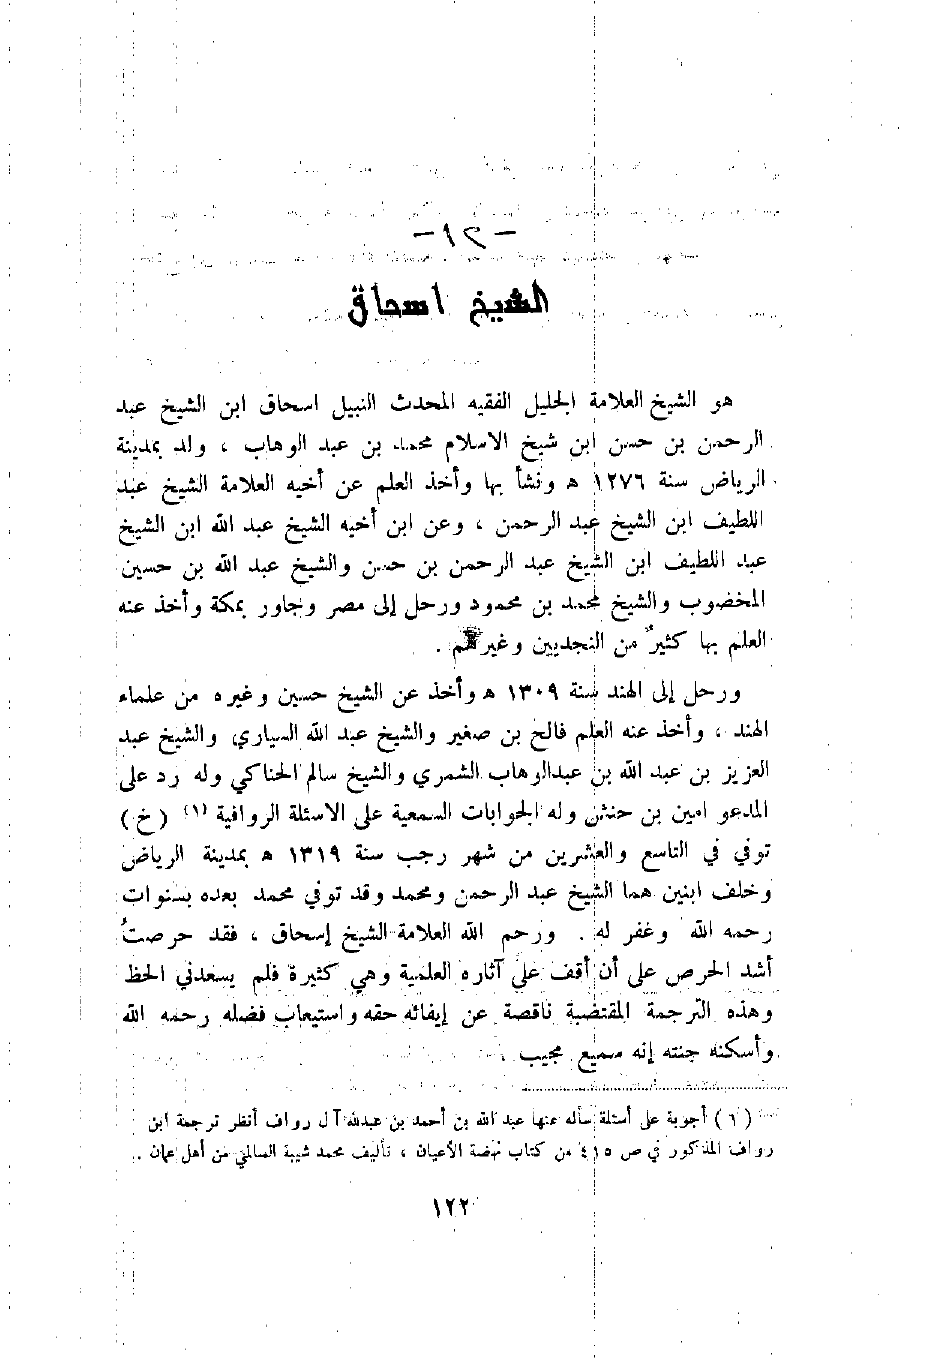 -١٣-
الشيخ اسحاق
هو الشيخ العلامة الجليل الفقيه المحدث النبيل اسحاق ابن الشيخ عبد
الرحمن بن حسن ابن شيخ الاسلام محمد بن عبد الوهاب ، ولد بمدينة
الرياض سنة ١٢٧٦ هـ ونشأ بها وأخذ العلم عن أخيه العلامة الشيخ عبد
اللطيف ابن الشيخ عبد الرحمن ، وعن ابن أخيه الشيخ عبد الله ابن الشيخ
عبد اللطيف ابن الشيخ عبد الرحمن بن حسن والشيخ عبد الله بن حسين
المخضوب والشيخ محمد بن محمود ورحل إلى مصر وجاور بمكة وأخذ عنه
العلم بها كثيرٌ من النجديين وغيرهم .
ورحل إلى الهند سنة ١٣٠٩ هـ وأخذ عن الشيخ حسين وغيره من علماء
الهند ، وأخذ عنه العلم فالح بن صغير والشيخ عبد الله السياري والشيخ عبد
العزيز بن عبد الله بن عبدالوهاب الشمري والشيخ سالم الحناكي وله رد على
المدعو امين بن حنش وله الجوابات السمعية على الاسئلة الروافية (١) (خ)
توفي في التاسع والعشرين من شهر رجب سنة ١٣١٩ هـ بمدينة الرياض
وخلف ابنين هما الشيخ عبد الرحمن ومحمد وقد توفي محمد بعده بسنوات
رحمه الله وغفر له . ورحم الله العلامة الشيخ إسحاق ، فقد حرصتُ
أشد الحرص على أن أقف على آثاره العلمية وهي كثيرة فلم يسعدني الحظ
وهذه الترجمة المقتضبة ناقصة عن إيفائه حقه واستيعاب فضله رحمه الله
وأسكنه جنته إنه سميع مجيب .
(١) أجوبة على أسئلة سأله عنها عبد الله بن أحمد بن عبدلله آل رواف أنظر ترجمة ابن
رواف المذكور في ص ٤١٥ من كتاب نهضة الأعيان ، تأليف محمد شيبة السالمي من أهل عمان .
١٢٢